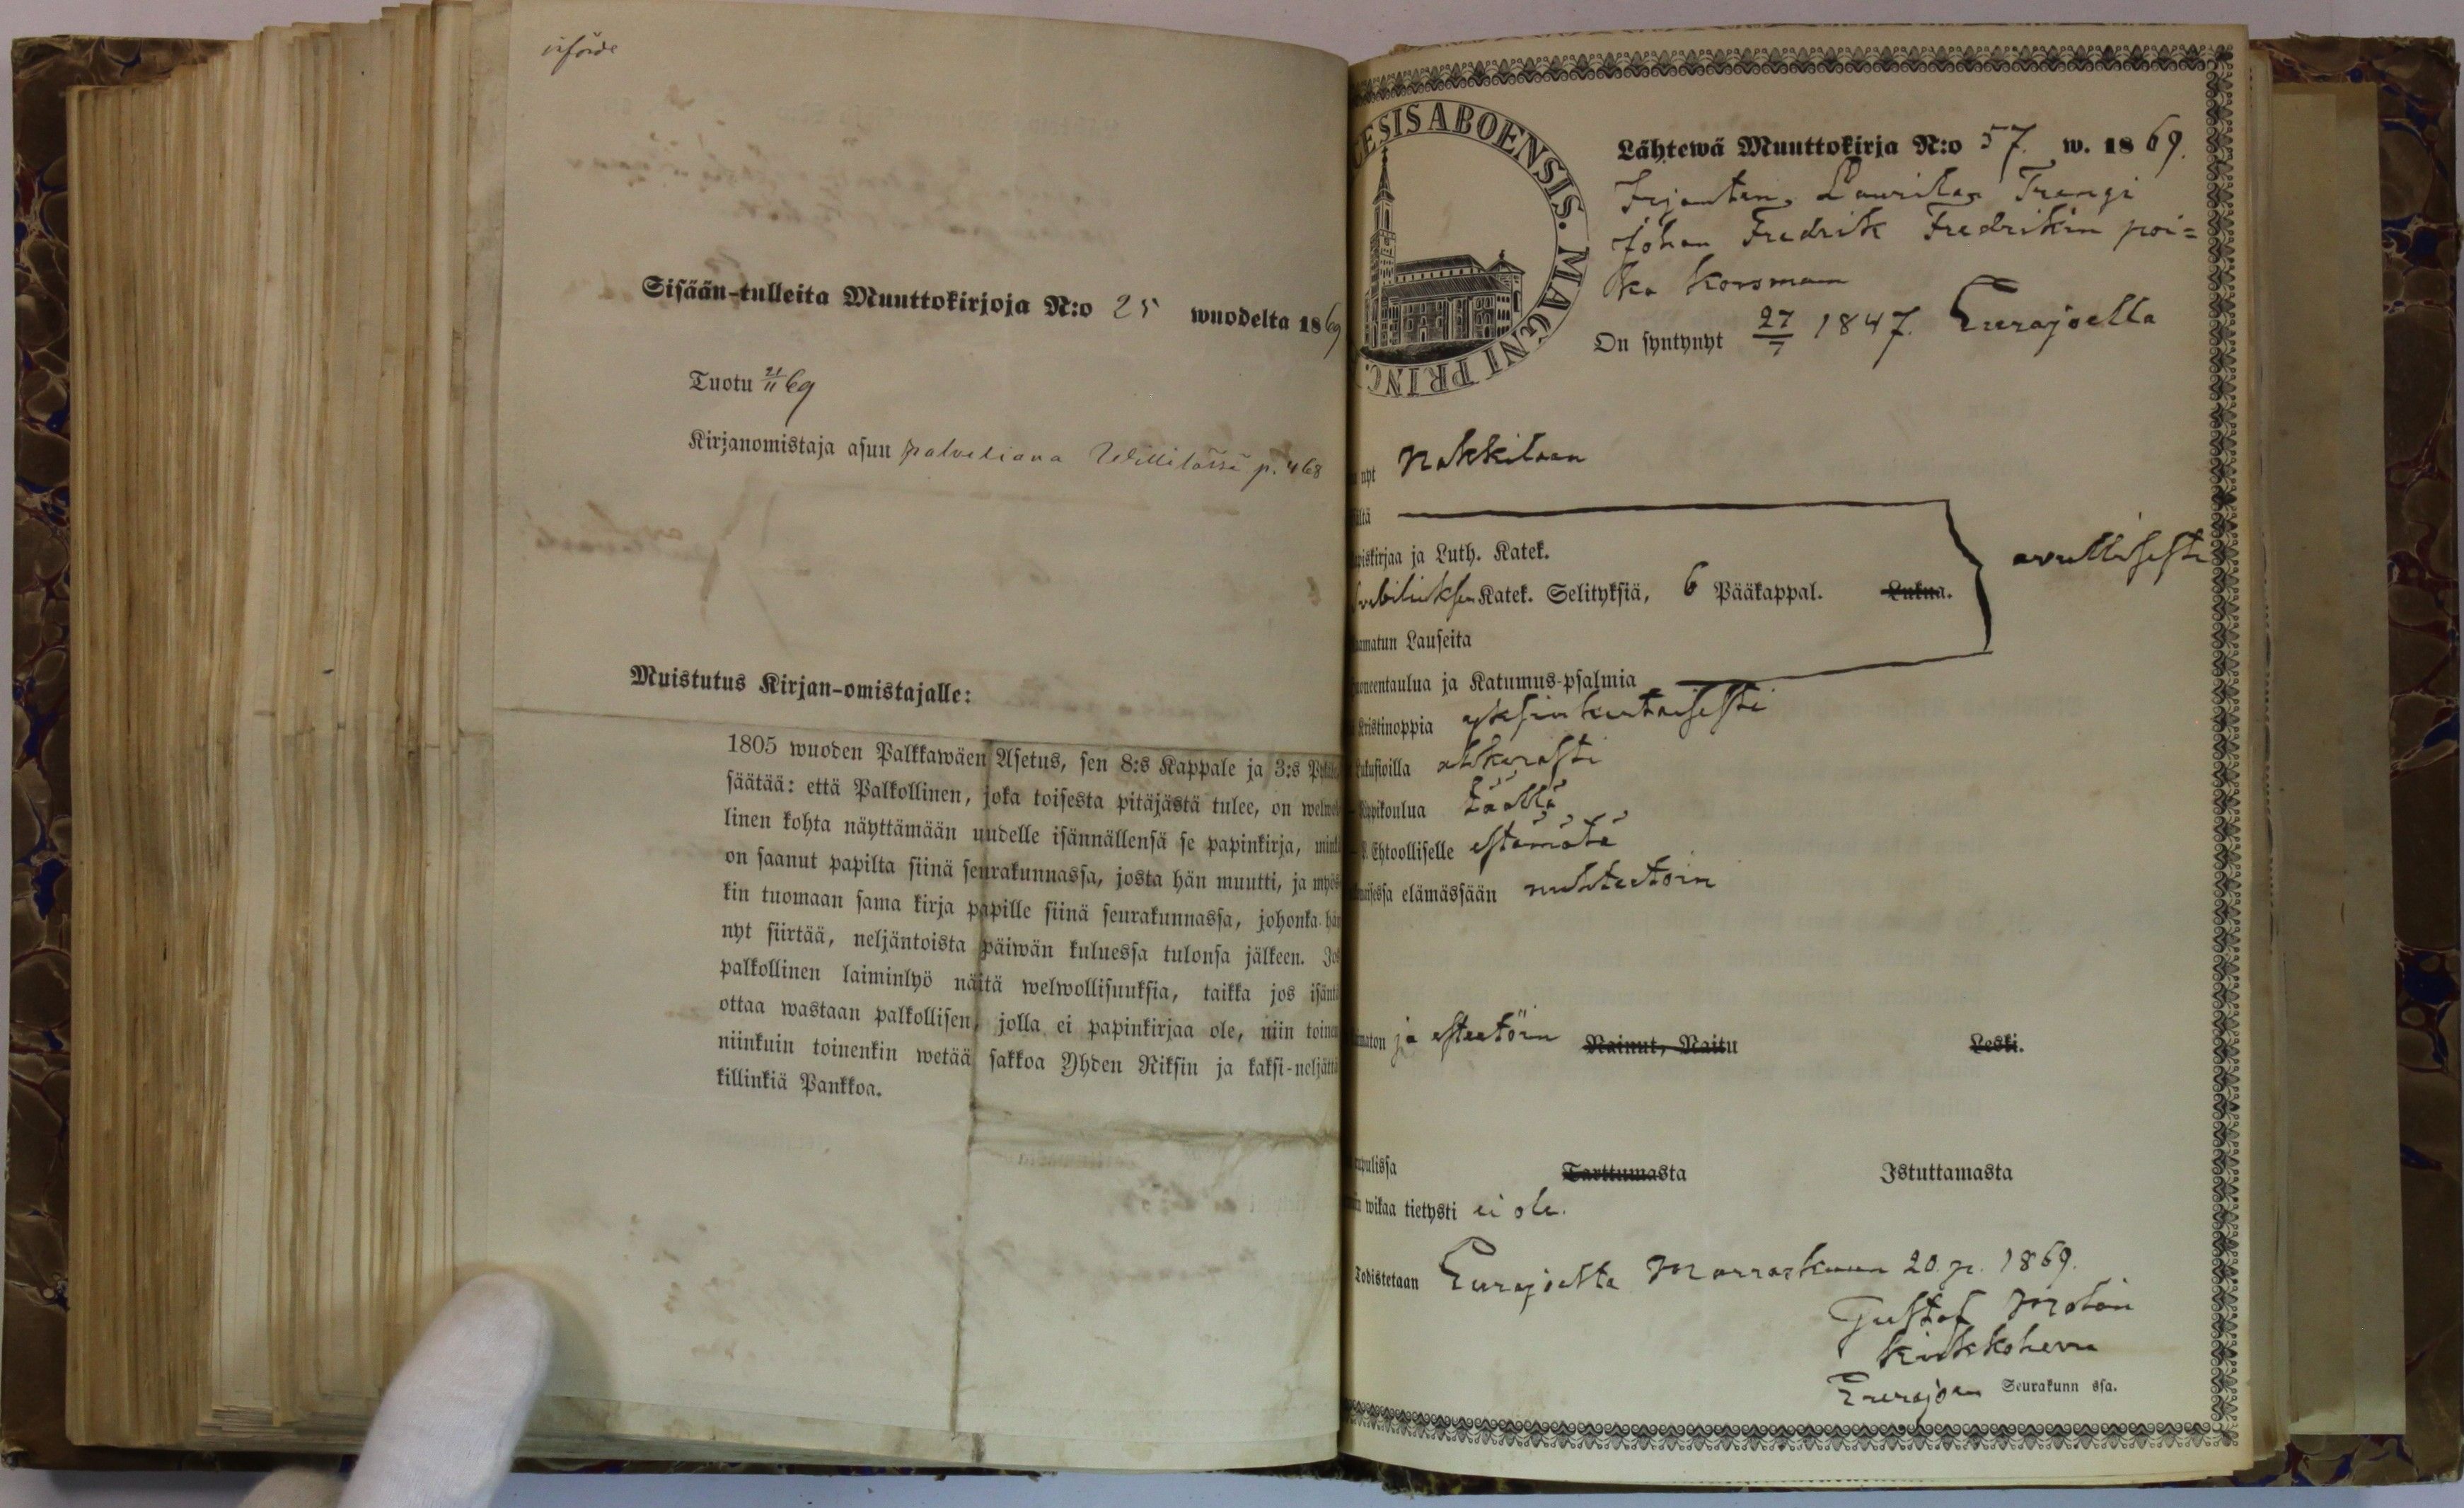 införde
Sisään-tulleita Muuttokirjoja N:o 25 wuodelta 1869
Tuotu 21/11 69
Kirjanomistaja asuu palveliana Willilässä p. 468
Muistutus Kirjan-omistajalle:
1805 wuoden Palkkawäen Asetus, sen 8:s Kappale ja 3:s
säätää: että Palkollinen, joka toisesta pitäjästä tulee, on welwol
linen kohta näyttämään uudelle isännällensä se papinkirja, minkä
on saanut papilta siinä seurakunnassa, josta hän muutti, ja myös
kin tuomaan sama kirja papille siinä seurakunnassa, johonka hän
nyt siirtää, neljäntoista päiwän kuluessa tulonsa jälkeen. Jos
palkollinen laiminlyö näitä welwollisuuksia, taikka jos isäntä
ottaa wastaan palkollisen, jolla ei papinkirjaa ole, niin toinen
niinkuin toinenkin wetää sakkoa Yhden Riksin ja kaksi-neljättä
killinkiä Pankkoa.
ESIS ABOENSIS. MAGNI PRINC
Lähtewä Muuttokirja N:o 57. w. 1869.
Irjanten, Laurilan Trengi
Johan Fredrik Fredrikin poi=
ka Korsman
On syntynyt 27/7 1847. Eurajoella
nyt Nakkilaan
ältä
piskirjaa ja Luth. Katek.
Svebiliuksen Katek. Selityksiä, 6 Pääkappal. Lukua.
avullisesti
amatun Lauseita
uoneentaulua ja Katumus-psalmia
Kristinoppia yksinkertaisesti
Lukusioilla ahkerasti
Rippikoulua täällä
Ehtoolliselle estämätä
elämässään nuhteetoin
maton ja esteetöin Nainut, Naitu Leski.
upulissa Tarttumasta Istuttamasta
wikaa tietysti ei ole.
Todistetaan Eurajoella Marraskuun 20. p. 1869.
Gustaf Molin
Kirkkoherra
Eurajoen Seurakunn ssa.